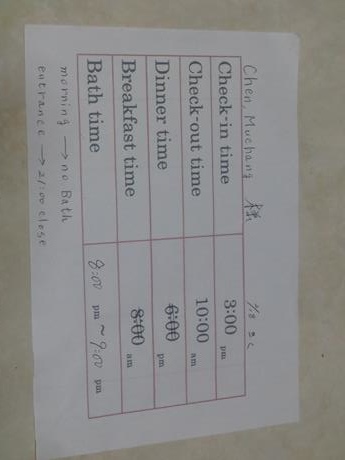 Chen, Muchang 様
Check-in time 3:00 pm
Check-out time 10:00 am
Dinner time 6:00 pm
Breakfast time 8:00 am
Bath time 8:00 pm ~ 9:00 pm
morning → no Bath
entrance → 21:00 close